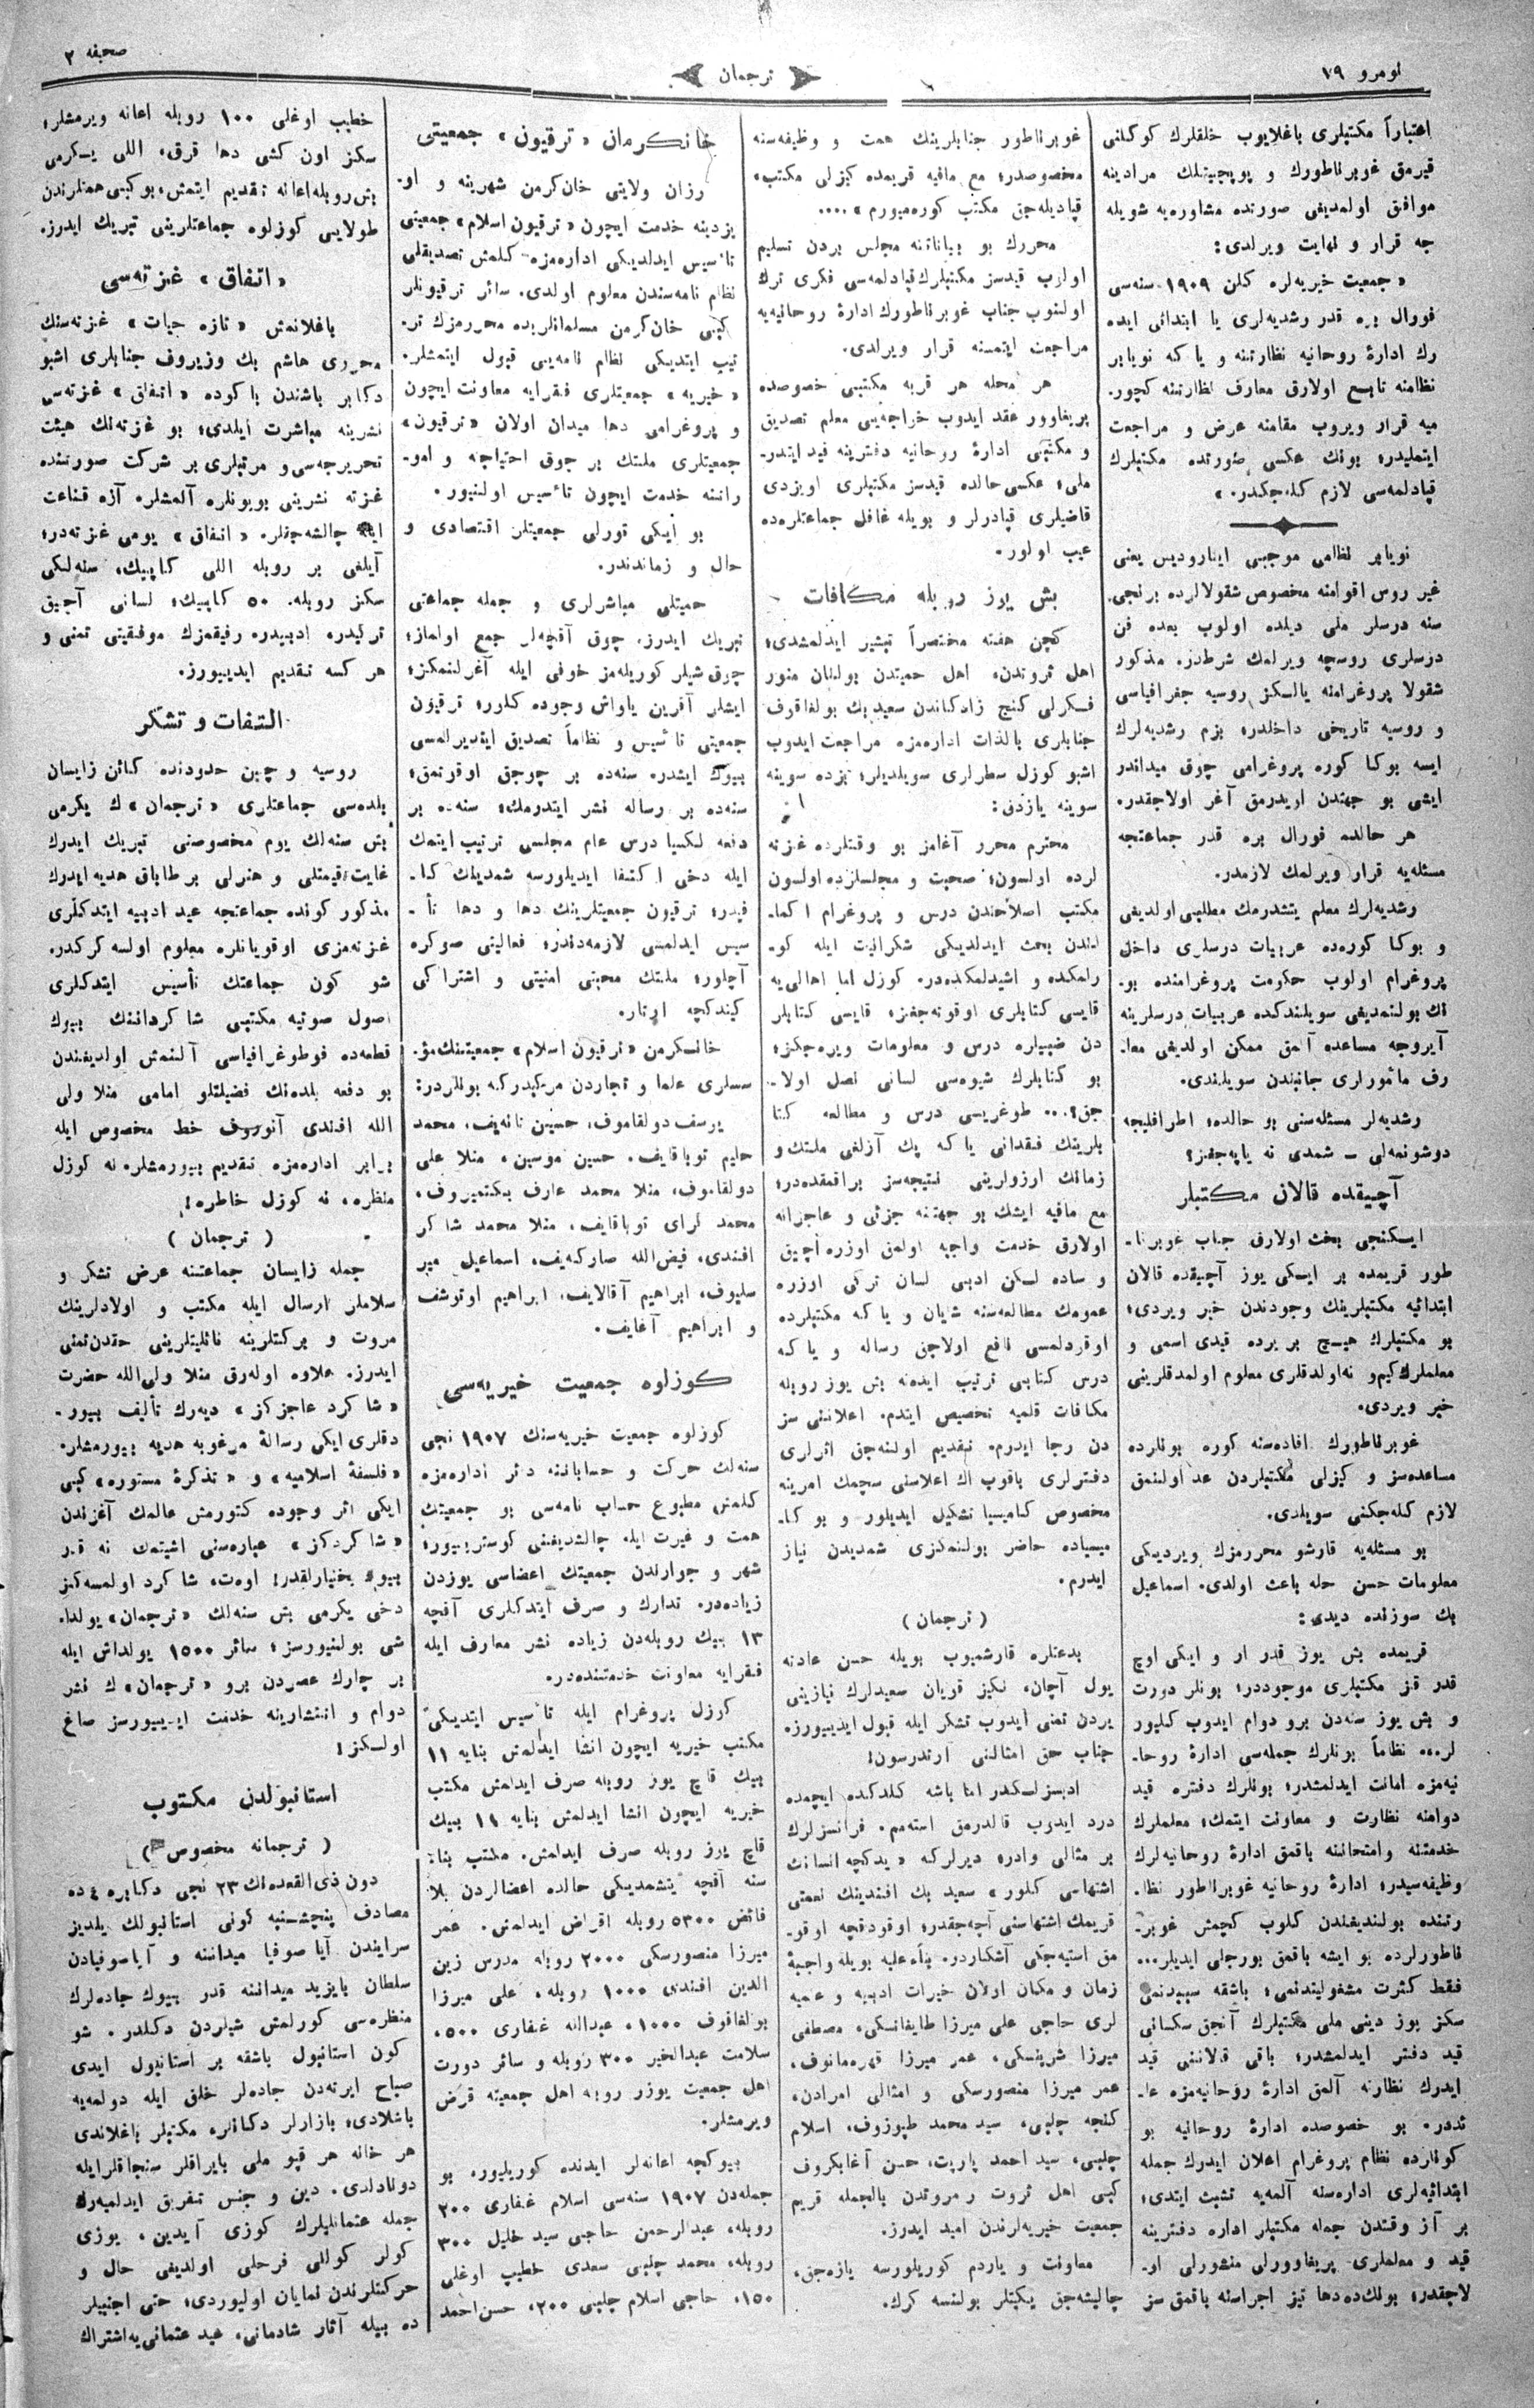 نومرو ٧٩
ترجمان
صحيفه ٣
اعتباراً مكتبلرى باغلايوب خلقلرك كوكلنى
قيرمق غوبرناطورك و پوپچيتلك مرادينه
موافق اولمديغى صورتده مشاوره‌يه شويله
جه قرار و نهايت ويرلدى:
« جمعيت خيريه‌لره كلن ١٩٠٩ سنه‌سى
فورال بره قدر رشديه‌لرى يا ابتدائى ايده
رك ادارۀ روحانيه نظارتنه و ياكه نويابر
نظامنه تابع اولارق معارف نظارتنه كچور.
ميه قرار ويروب مقامنه عرض و مراجعت
ايتمليدر؛ بونك عكسى صورتده مكتبلرك
قپادلمه‌سى لازم كله‌جكدر. »
نويابر نظامى موجبى اينارودیس يعنى
غير روس اقوامنه مخصوص شقولالرده برنجى
سنه درسلر ملى ديلده اولوب بعده فن
درسلرى روسچه ويرلمك شرطدر. مذكور
شقولا پروغرامنه يالكز روسيه جغرافياسى
و روسيه تاريخى داخلدر؛ بزم رشديه‌لرك
ايسه بوكا كوره پروغرامى چوق ميداندر
ايشى بو جهتدن اريدرمق آغر اولاجقدر.
هر حالده فورال بره قدر جماعتجه
مسئله‌يه قرار ويرلمك لازمدر.
رشديه‌لرك معلم يتشدرمك مطلبى اولديغى
و بوكا كوره‌ده عربيات درسلرى داخل
پروغرام اولوب حكومت پروغرامنده بو-
نك بولنمديغى سويلندكده عربيات درسلرينه
آيروجه مساعده آلمق ممكن اولديغى معا-
رف مأمورلرى جانبندن سويلندى.
رشديه‌لر مسئله‌سنى بو حالده؛ اطرافليجه
دوشونمه‌لى ــ شمدى نه ياپه‌جغز؟
آچيقده قالان مكتبلر
ايكنجى بحث اولارق جناب غوبرنا-
طور قريمده بر ايكى يوز آچيقده قالان
ابتدائيه مكتبلرينك وجودندن خبر ويردى؛
بو مكتبلرك هيچ بر يرده قيدى اسمى و
معلملرك كيم و نه‌اولدقلرى معلوم اولمدقلرينى
خبر ويردى.
غوبرناطورك افاده‌سنه كوره بونلرده
مساعده‌سز و كيزلى مكتبلردن عد اولنمق
لازم كله‌جكنى سويلدى.
بو مسئله‌يه قارشو محررمزك ويرديكى
معلومات حسن حله باعث اولدى. اسماعيل
بك سوزنده ديدى:
قريمده بش يوز قدر ار و ايكى اوچ
قدر قز مكتبلرى موجوددر؛ بونلر دورت
و بش يوز سنه‌دن برو دوام ايدوب كليور
لر... نظاماً بونلرك جمله‌سى ادارۀ روحا-
نيه‌مزه امانت ايدلمشدر؛ بونلرك دفتره قيد
دوامنه نظارت و معاونت ايتمك؛ معلملرك
خدمتنه وامتحاننه باقمق ادارۀ روحانيه‌لرك
وظيفه‌سيدر؛ ادارۀ روحانيه غوبرناطور نظا-
رتنده بولنديغندن كلوب كچمش غوبر-
ناطورلرده بو ايشه باقمق بورجلى ايديلر...
فقط كثرت مشغوليتدنمى؛ باشقه سببدنمى
سكز يوز دينى ملى مكتبلرك آنجق سكسانى
قيد دفتر ايدلمشدر؛ باقى قالاننى قيد
ايدرك نظارته آلمق ادارۀ روحانيه‌مزه عا-
ئددر. بو خصوصده ادارۀ روحانيه بو
كونلرده نظام پروغرام اعلان ايدرك جمله
ابتدائيه‌لرى اداره‌سنه آلمه‌يه تشبث ايتدى؛
بر آز وقتدن جمله مكتبلر اداره دفترينه
قيد و معلملرى پريغاوورلى منشورلى او-
لاجقدر؛ بونك‌ده‌دها تيز اجراسنه باقمق سز
غوبرناطور جنابلرينك همت و وظيفه‌سنه
مخصوصدر؛ مع مافيه قريمده كيزلى مكتب،
قپاديله‌جق مكتب كوره‌ميورم »....
محررك بو بياناتنه مجلس بردن تسليم
اولوب قيدسز مكتبلرك‌قپادلمه‌سى فكرى ترك
اولنوب جناب غوبرناطورك ادارۀ روحانيه‌يه
مراجعت ايتمسنه قرار ويرلدى.
هر محله هر قريه مكتبى خصوصده
پريغاوور عقد ايدوب خراجه‌سى معلم تصديق
و مكتبنى ادارۀ روحانيه دفترينه قيد ايتدر-
ملى؛ عكسى حالده قيدسز مكتبلرى اويزدى
قاضيلرى قپادرلر و بويله غافل جماعتلره‌ده
عيب اولور.
بش يوز روبله مكافات
كچن هفته مختصراً تبشير ايدلمشدى؛
اهل ثروتدن، اهل حميتدن بولنان منور
فكرلى كنج زادكاندن سعيد بك بولغاقوف
جنابلرى بالذات اداره‌مزه مراجعت ايدوب
اشبو كوزل سطرلرى سويلديلر؛ بزده سوينه
سوينه يازدق:
محترم محرر آغامز بو وقتلرده غزته
لرده اولسون؛ صحبت و مجلسلرده اولسون
مكتب اصلاحندن درس و پروغرام اكما-
لندن بحث ايدلديكى شكرانيت ايله كو-
رلمكده و اشيدلمكده‌در. كوزل اما اهالى‌يه
قايسى كتابلرى اوقوته‌جغز؛ قايسى كتابلر
دن صبيلره درس و معلومات ويره‌جكز؛
بو كتابلرك شيوه‌سى لسانى نصل اولا-
جق؟... طوغريسى درس و مطالعه كتا
بلرينك فقدانى ياكه پك آزلغى ملتك و
زمانك ارزولرينى نتيجه‌سز براقمقده‌در؛
مع مافيه ايشك بو جهتنه جزئى و عاجزانه
اولارق خدمت واجبه اولمق اوزره آچيق
و ساده لكن ادبى لسان تركى اوزره
عمومك مطالعه‌سنه شايان و ياكه مكتبلرده
اوقردلمسى نافع اولاجق رساله و ياكه
درس كتابى ترتيب ايدنه بش يوز روبله
مكافات قلميه تخصيص ايتدم. اعلاننى سز
دن رجا ايدرم. تقديم اولنه‌جق اثرلرى
دفترلرى باقوب اك اعلاسنى سچمك امرينه
مخصوص كاميسيا تشكيل ايديلور و بو كا-
ميسياده حاضر بولنمه‌كزى شمديدن نياز
ايدرم.
( ترجمان )
بدعتلره قارشمیوب بويله حسن عادته
يول آچان، نكيز قربان سعيدلرك نيازينى
يردن تمنى ايدوب تشكر ايله قبول ايدييورزه
جناب حق امثالنى ارتدرسون!
ادبسزلكدر اما باشه كلدكده ايچمده
درد ايدوب قالدرمق استه‌مم. فرانسزلرك
بر مثالى وادر؛ ديرلركه « يدكچه انسانك
اشتهاسى كلور» سعيد بك افندينك نعمتى
قريمك اشتهاسنى آچه‌جقدر؛ اوقودقچه اوقو-
مق استيه‌جكى آشكاردر. بناء عليه بويله واجبۀ
زمان و مكان اولان خيرات ادبيه و عميه
لرى حاجى على ميرزا طايغانسكى، مصطفى
ميرزا شرينسكى، عمر ميرزا قهرمانوف،
عمر ميرزا منصورسكى و امثالى امرادن،
كنجه چلبى، سيد محمد طپوزوف، اسلام
چلبى، سيد احمد پاربت، حسن آغابكروف
كبى اهل ثروت و مروتدن بالجمله قريم
جمعيت خيريه‌لرندن اميد ايدرز.
معاونت و ياردم كوريلورسه يازه‌جق،
چاليشه‌جق يكيتلر بولنسه كرك.
خانكرمان « ترقيون » جمعيتى
رزان ولايتى خان‌كرمن شهرينه و او-
يزدينه خدمت ايچون « ترقيون اسلام» جمعيتى
تأسيس ايدلديكى اداره‌مزه كلمش تصديقلى
نظام نامه‌سندن معلوم اولدى. سائر ترقيونلر
كبى خان‌كرمن مسلمانلريده محررمزك تر-
تيب ايتديكى نظام نامه‌يى قبول ايتمشلر.
« خيريه » جمعيتلرى فقرايه معاونت ايچون
و پروغرامى دها ميدان اولان « ترقيون »
جمعيتلرى ملتك بر چوق احتياجنه و امو-
راتنه خدمت ايچون تأسيس اولنيور.
بو ايكى تورلى جمعيتلر اقتصادى و
حال و زماندندر.
حميتلى مباشرلرى و جمله جماعتى
تبريك ايدرز. چوق آقچه‌لر جمع اولماز؛
چوق شيلر كوريله‌مز خوفى ايله آغرلنمكز؛
ايشلر آقرين ياواش وجوده كلور؛ ترقيون
جمعيتى تأسيس و نظاماً تصديق ايتديرلمسى
بيوك ايشدر. سنه‌ده بر چوجق اوقوتمق؛
سنه‌ده بر رساله نشر ايتدرمك؛ سنه‌ده بر
دفعه لكسيا درس عام مجلسى ترتيب ايتمك
ايله دخى اكتفا ايديلورسه شمديلك كا-
فيدر؛ ترقيون جمعيتلرينك دها و دها تأ-
سيس ايدلمسى لازمه‌دندر؛ فعاليتى صوكره
آچلور؛ ملتك محبتى امنيتى و اشتراكى
كيتدكچه ارتار.
خانكرمن « ترقيون اسلام» جمعيتنك مؤ-
سسلرى علما و تجاردن مركبدركه بونلردر:
يوسف دولقاموف، حسين تانه‌يف، محمد
حليم توباقايف، حسين موسين، منلا على
دولقاموف، منلا محمد عارف بيكتميروف،
محمد كراى توباقايف، منلا محمد شاكر
افندى، فيض‌الله صاركه‌يف، اسماعيل مير
سليوف، ابراهيم آقالايف، ابراهيم اوتوشف
و ابراهيم آغايف.
كوزلوه جمعيت خيريه‌سى
كوزلوه جمعيت خيريه‌سنك ١٩٠٧ نجى
سنه‌لك حركت و حساباتنه دائر اداره‌مزه
كلمش مطبوع حساب نامه‌سى بو جمعيتك
همت و غيرت ايله چالشديغنى كوسترييور؛
شهر و جوارلندن جمعيتك اعضاسى يوزدن
زياده‌در. تدارك و صرف ايتدكلرى آقچه
١٣ بيك روبله‌دن زياده نشر معارف ايله
فقرايه معاونت خدمتنده‌در.
كوزل پروغرام ايله تأسيس ايتديكى
مكتب خيريه ايچون انشا ايدلمش بنايه ١١
بيك قاچ يوز روبله صرف ايدلمش مكتب
خيريه ايچون انشا ايدلمش بنايه ١١ بيك
قاچ يوز روبله صرف ايدلمش. مكتب بنا-
سنه آقچه يتشمديكى حالده اعضالردن بلا
فائض ٥٣٠٠ روبله اقراض ايدلمش. عمر
ميرزا منصورسكى ٢٠٠٠ روبله مدرس زين
الدين افندى ١٠٠٠ روبله، على ميرزا
بولغاقوف ١٠٠٠، عبدالله غفارى ٥٠٠،
سلامت عبدالخير ٣٠٠ روبله و سائر دورت
اهل جمعيت يوزر روبله اهل جمعيته قرض
ويرمشلر.
بيوكچه اعانه‌لر ايدنده كوريليور، بو
جمله‌دن ١٩٠٧ سنه‌سى اسلام غفارى ٢٠٠
روبله، عبدالرحمن حاجى سيد خليل ٣٠٠
روبله، محمد چلبى سعدى خطيب اوغلى
١٥٠، حاجى اسلام چلبى ٢٠٠، حسن احمد
خطيب اوغلى ١٠٠ روبله اعانه ويرمشلر؛
سكز اون كشى دها قرق، اللى يكرمى
بش روبله اعانه تقديم ايتمش، بو كبى همتلرندن
طولايى كوزلوه جماعتلرينى تبريك ايدرز.
« اتفاق » غزته‌سى
باغلانمش « تازه حيات » غزته‌سنك
محررى هاشم بك وزيروف جنابلرى اشبو
دكابر باشندن باكوده « اتفاق » غزته‌سى
نشرينه مباشرت ايلدى؛ بو غزته‌نك هيئت
تحريرجه‌سى و مرتبلرى بر شركت صورتنده
غزته نشرينى بويونلره آلمشلر. آزه قناعت
چالشه‌جقلر. « اتفاق » يومى غزته‌در؛
آيلغى بر روبله اللى كاپيك، سنه‌لكى
سكز روبله ٥٠ كاپيك؛ لسانى آچيق
تركيدر. ادبييدر. رفيقمزك موفقيتى تمنى و
هر كسه تقديم ايدييورز.
التفات و تشكر
روسيه و چين حدودنده كائن زايسان
بلده‌سى جماعتلرى « ترجمان » ك يكرمى
بش سنه‌لك يوم مخصوصنى تبريك ايدرك
غايت قيمتلى و هنرلى بر طاباق هديه ايدرك
مذكور كونده جماعتجه عيد ادبيه ايتدكلرى
غزته‌مزى اوقويانلره معلوم اولسه كركدر.
شو كون جماعتك تأسيس ايتدكلرى
اصول صوتيه مكتبى شاكرداننك بيوك
قطعه‌ده فوطوغرافياسى آلنمش اولديغندن
بو دفعه بلده‌نك فضيلتلو امامى منلا ولى
الله افندى آنوروف خط مخصوص ايله
برابر اداره‌مزه تقديم بيورمشلر. نه كوزل
منظره، نه كوزل خاطره!
( ترجمان )
جمله زايسان جماعتنه عرض تشكر و
سلاملر ارسال ايله مكتب و اولادلرينك
مروت و بركتلرينه نائليتلرينى حقدن‌تمنى
ايدرز. علاوه اوله‌رق منلا ولى‌الله حضرت
« شاكرد عاجزكز » ديه‌رك تأليف بيور-
دقلرى ايكى رسالۀ مرغوبه هديه بيورمشلر.
« فلسفۀ اسلاميه » و « تذكرۀ مستوره » كبى
ايكى اثر وجوده كتورمش عالمك آغزندن
« شاكردكز » عباره‌سنى اشيتمك نه قدر
بيوك بختيارلقدر! اوت، شاكرد اولمسه‌كز
دخى يكرمى بش سنه‌لك « ترجمان » يولدا-
شى بولنيورسز؛ سائر ١٥٠٠ يولداش ايله
بر چارك عصردن برو « ترجمان » ك نشر
دوام و انتشارينه خدمت ايدييورسز صاغ
اولكز!
استانبولدن مكتوب
( ترجمانه مخصوص )
دون ذى القعده‌نك ٢٣ نجى دكابره ٤ ده
مصادف پنچشنبه كونى استانبولك يلديز
سرايندن آيا صوفيا ميداننه و آياصوفيادن
سلطان بايزيد ميداننه قدر بيوك جاده‌لرك
منظره‌سى كورلمش شيلردن دكلدر. شو
كون استانبول باشقه بر استانبول ايدى
صباح ايرته‌دن جاده‌لر خلق ايله دولمه‌يه
باشلادى؛ بازارلر دكانلر، مكتبلر باغلاندى
هر خانه هر قپو ملى بايراقلر سنجاقلرايله
دونادلدى. دين و جنس تفريق ايدلميه‌رك
جمله عثمانليلرك كوزى آيدين، يوزى
كولر كوللى فرحلى اولديغى حال و
حركتلرندن نمايان اوليوردى؛ حتى اجنبيلر
ده بيله آثار شادمانى، عيد عثمانى‌يه اشتراك